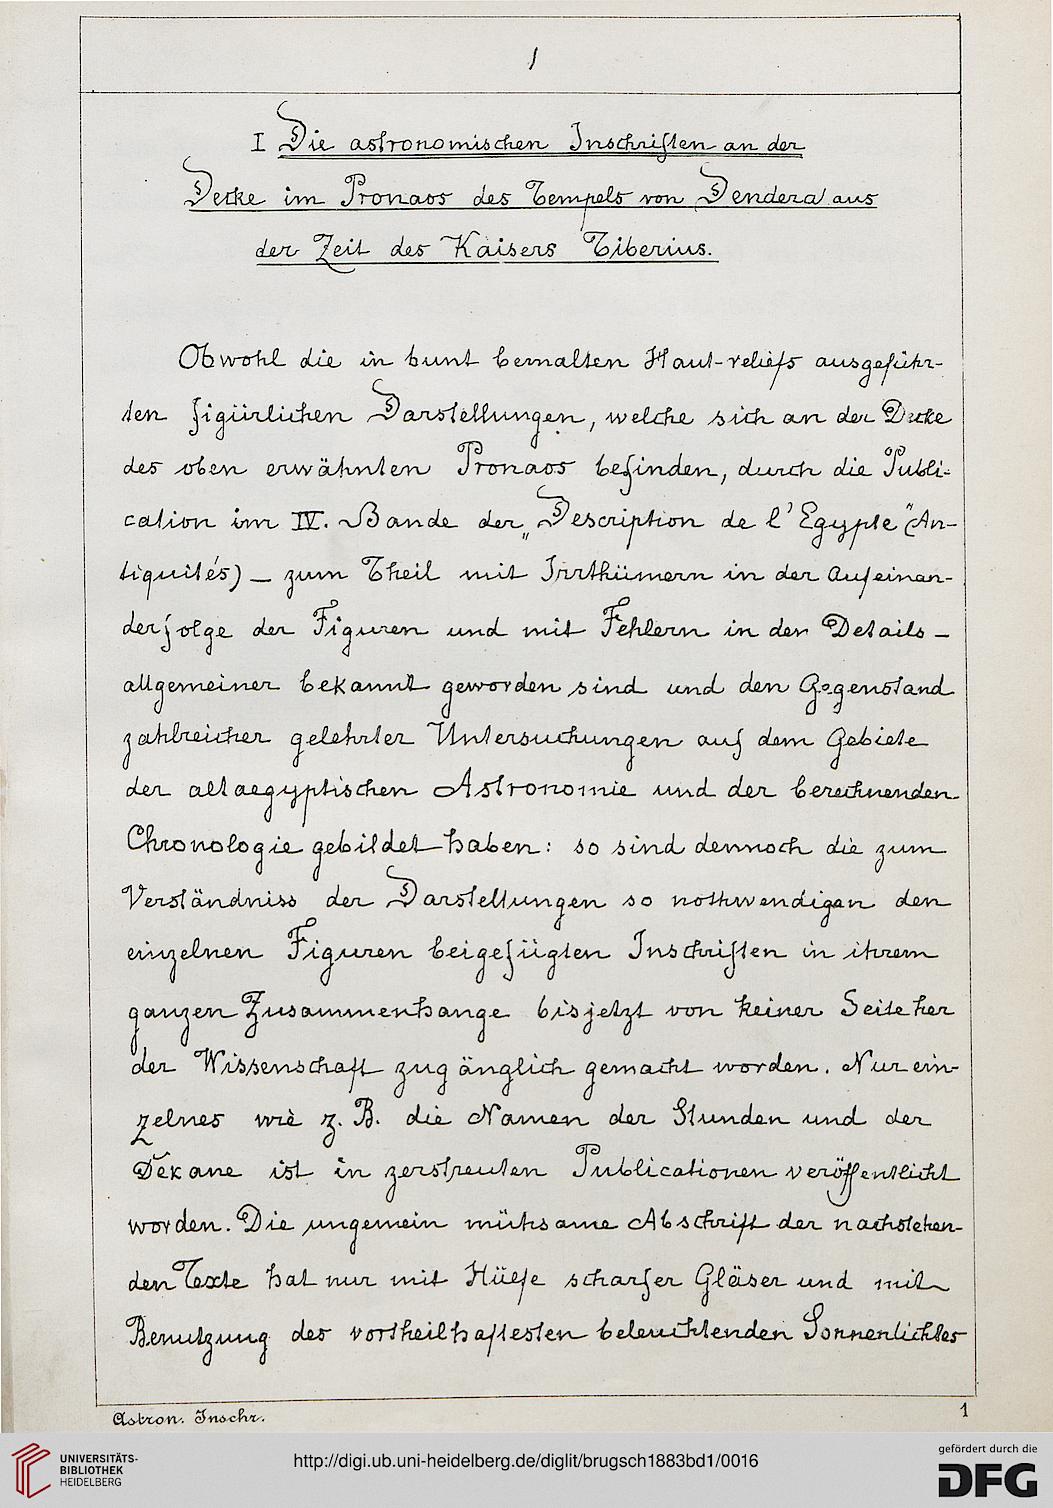 1
I Die astronomischen Inschriften an der
Decke im Pronaos des Tempels von Dendera aus
der Zeit des Kaisers Tiberius.
Obwohl die in bunt bemalten Haut-reliefs ausgeführ-
ten figürlichen Darstellungen, welche sich an der Decke
des oben erwähnten Pronaos befinden, durch die Publi-
cation im IV. Bande der „Description de l'Egypte“ (An-
tiquités) — zum Theil mit Irrthümern in der Aufeinan-
derfolge der Figuren und mit Fehlern in den Details —
allgemeiner bekannt geworden sind und den Gegenstand
zahlreicher gelehrter Untersuchungen auf dem Gebiete
der altaegyptischen Astronomie und der berechnenden
Chronologie gebildet haben: so sind dennoch die zum
Verständniss der Darstellungen so nothwendigen den
einzelnen Figuren beigefügten Inschriften in ihrem
ganzen Zusammenhange bis jetzt von keiner Seite her
der Wissenschaft zugänglich gemacht worden. Nur ein-
zelnes wie z. B. die Namen der Stunden und der
Dekane ist in zerstreuten Publicationen veröffentlicht
worden. Die ungemein mühsame Abschrift der nachstehen-
den Texte hat nur mit Hülfe scharfer Gläser und mit
Benutzung des vortheilhaftesten beleuchtenden Sonnenlichtes
Astron. Inschr.
1
UNIVERSITÄTS-
BIBLIOTHEK
HEIDELBERG
http://digi.ub.uni-heidelberg.de/diglit/brugsch1883bd1/0016
gefördert durch die
DFG